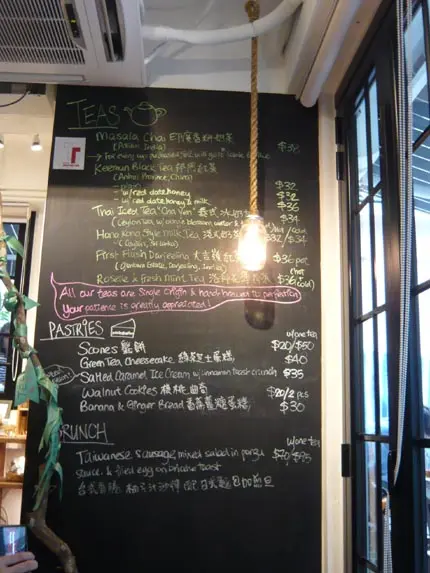 TEAS
Masala Chai 印度香料奶茶 $38
(Assam, India)
→ For every cup purchased,
Keemun Black Tea 祁門紅茶
(Anhui Province, China) $32
w/ red date honey $32
w/ red date honey & milk $36
Thai Iced Tea "Cha Yen" 泰式 $34
(Ceylon Tea w/ orange blossom water &
Hong Kong Style Milk Tea 港式奶茶 $32/$34
(Ceylon, Sri Lanka)
First Flush Darjeeling 大吉嶺紅茶 $36 pot
(Jungpana Estate, Darjeeling, India) (hot
Roselle & Fresh Mint Tea $36 cold)
All our teas are single origin & hand-brewed to perfection
Your patience is greatly appreciated!
PASTRIES w/one tea
Scones 鬆餅 $20/$50
Green Tea Cheesecake 綠茶芝士蛋糕 $40
Salted Caramel Ice Cream w/ cinnamon toast crunch $35
Walnut Cookies 核桃曲奇 $20/2 pcs
Banana & Ginger Bread 香蕉薑糖蛋糕 $30
BRUNCH w/one tea
Taiwanese sausage, mixed salad in ponzu $70/$95
sauce & fried egg on brioche toast